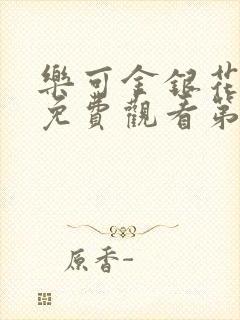 樂可金銀花
免費觀看第
原香-